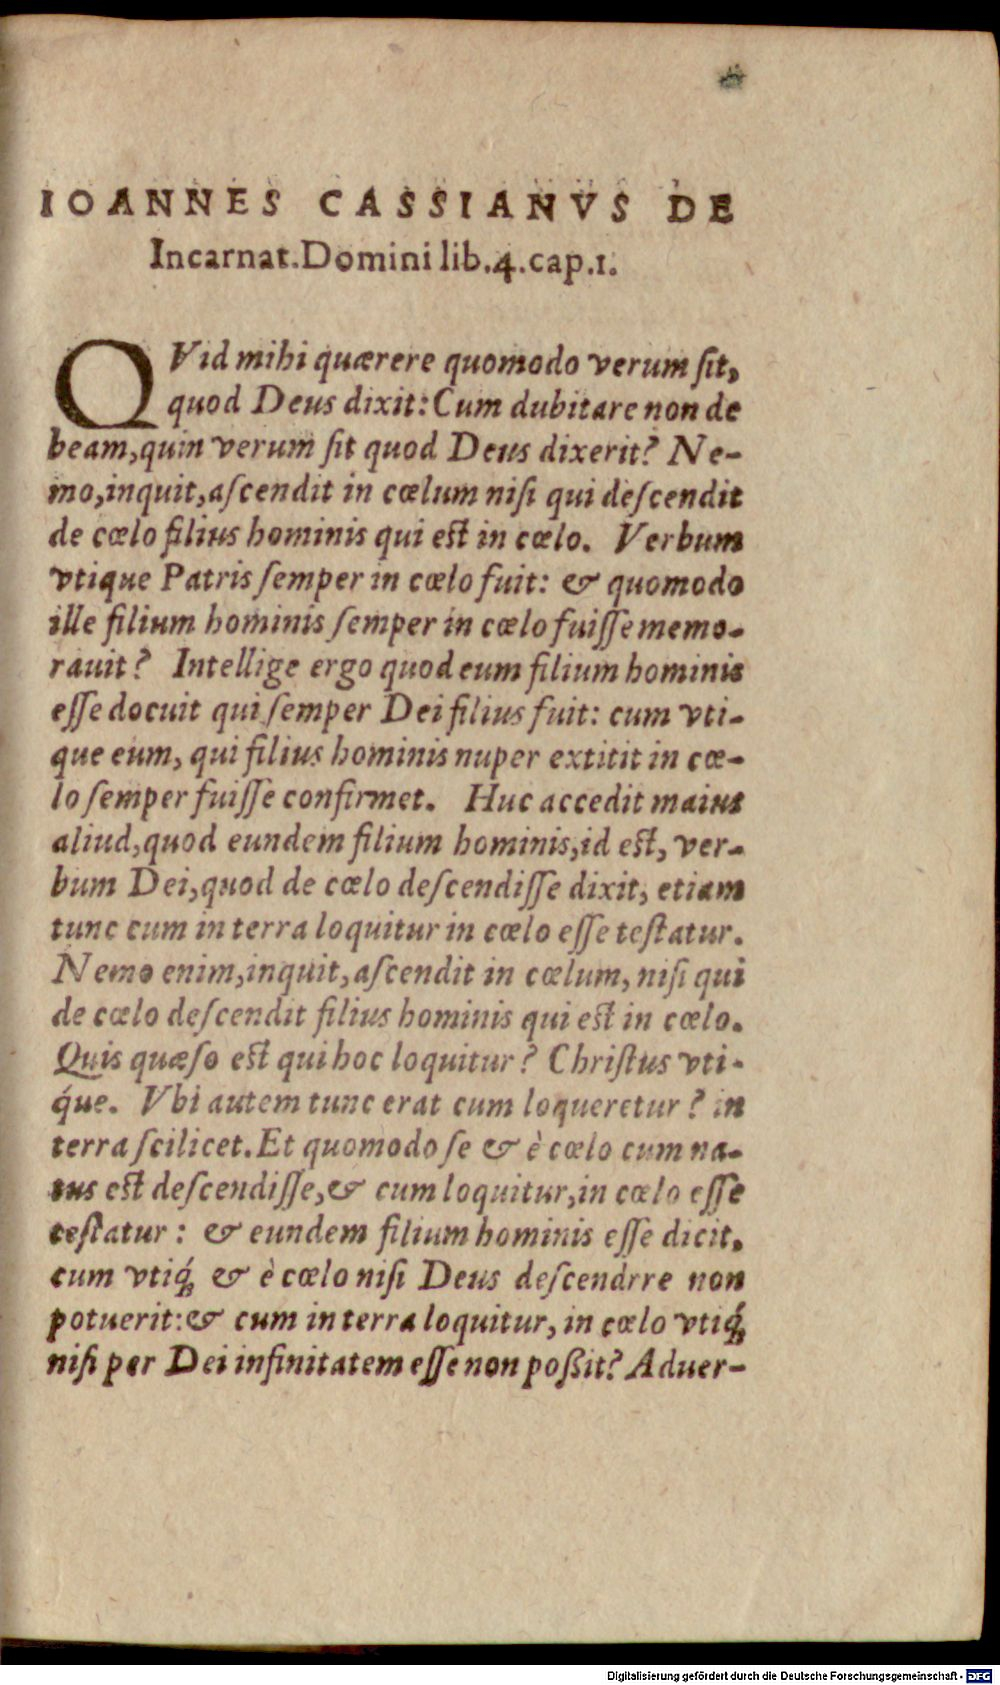 IOANNES CASSIANVS DE
Incarnat.Domini lib.4.cap.1.
QVid mihi quærere quomodo verum ſit,
quod Deus dixit: Cum dubitare non de
beam, quin verum ſit quod Deus dixerit? Ne-
mo, inquit, aſcendit in cœlum niſi qui deſcendit
de cœlo filius hominis qui eſt in cœlo. Verbum
vtique Patris ſemper in cœlo fuit: & quomodo
ille filium hominis ſemper in cœlo fuiſſe memo-
rauit? Intellige ergo quod eum filium hominis
eſſe docuit qui ſemper Dei filius fuit: cum vti-
que eum, qui filius hominis nuper extitit in cœ-
lo ſemper fuiſſe confirmet. Huc accedit maius
aliud, quod eundem filium hominis, id eſt, ver-
bum Dei, quod de cœlo deſcendiſſe dixit, etiam
tunc cum in terra loquitur in cœlo eſſe teſtatur.
Nemo enim, inquit, aſcendit in cœlum, niſi qui
de cœlo deſcendit filius hominis qui eſt in cœlo.
Quis quæſo eſt qui hoc loquitur? Chriſtus vti-
q́ue. Vbi autem tunc erat cum loqueretur? in
terra ſcilicet. Et quomodo ſe & è cœlo cum na-
tus eſt deſcendiſſe, & cum loquitur, in cœlo eſſe
teſtatur: & eundem filium hominis eſſe dicit,
cum vtiq́; & è cœlo niſi Deus deſcendrre non
potuerit: & cum in terra loquitur, in cœlo vtiq́;
niſi per Dei infinitatem eſſe non poßit? Aduer-
Digitalisierung gefördert durch die Deutsche Forschungsgemeinschaft - DFG